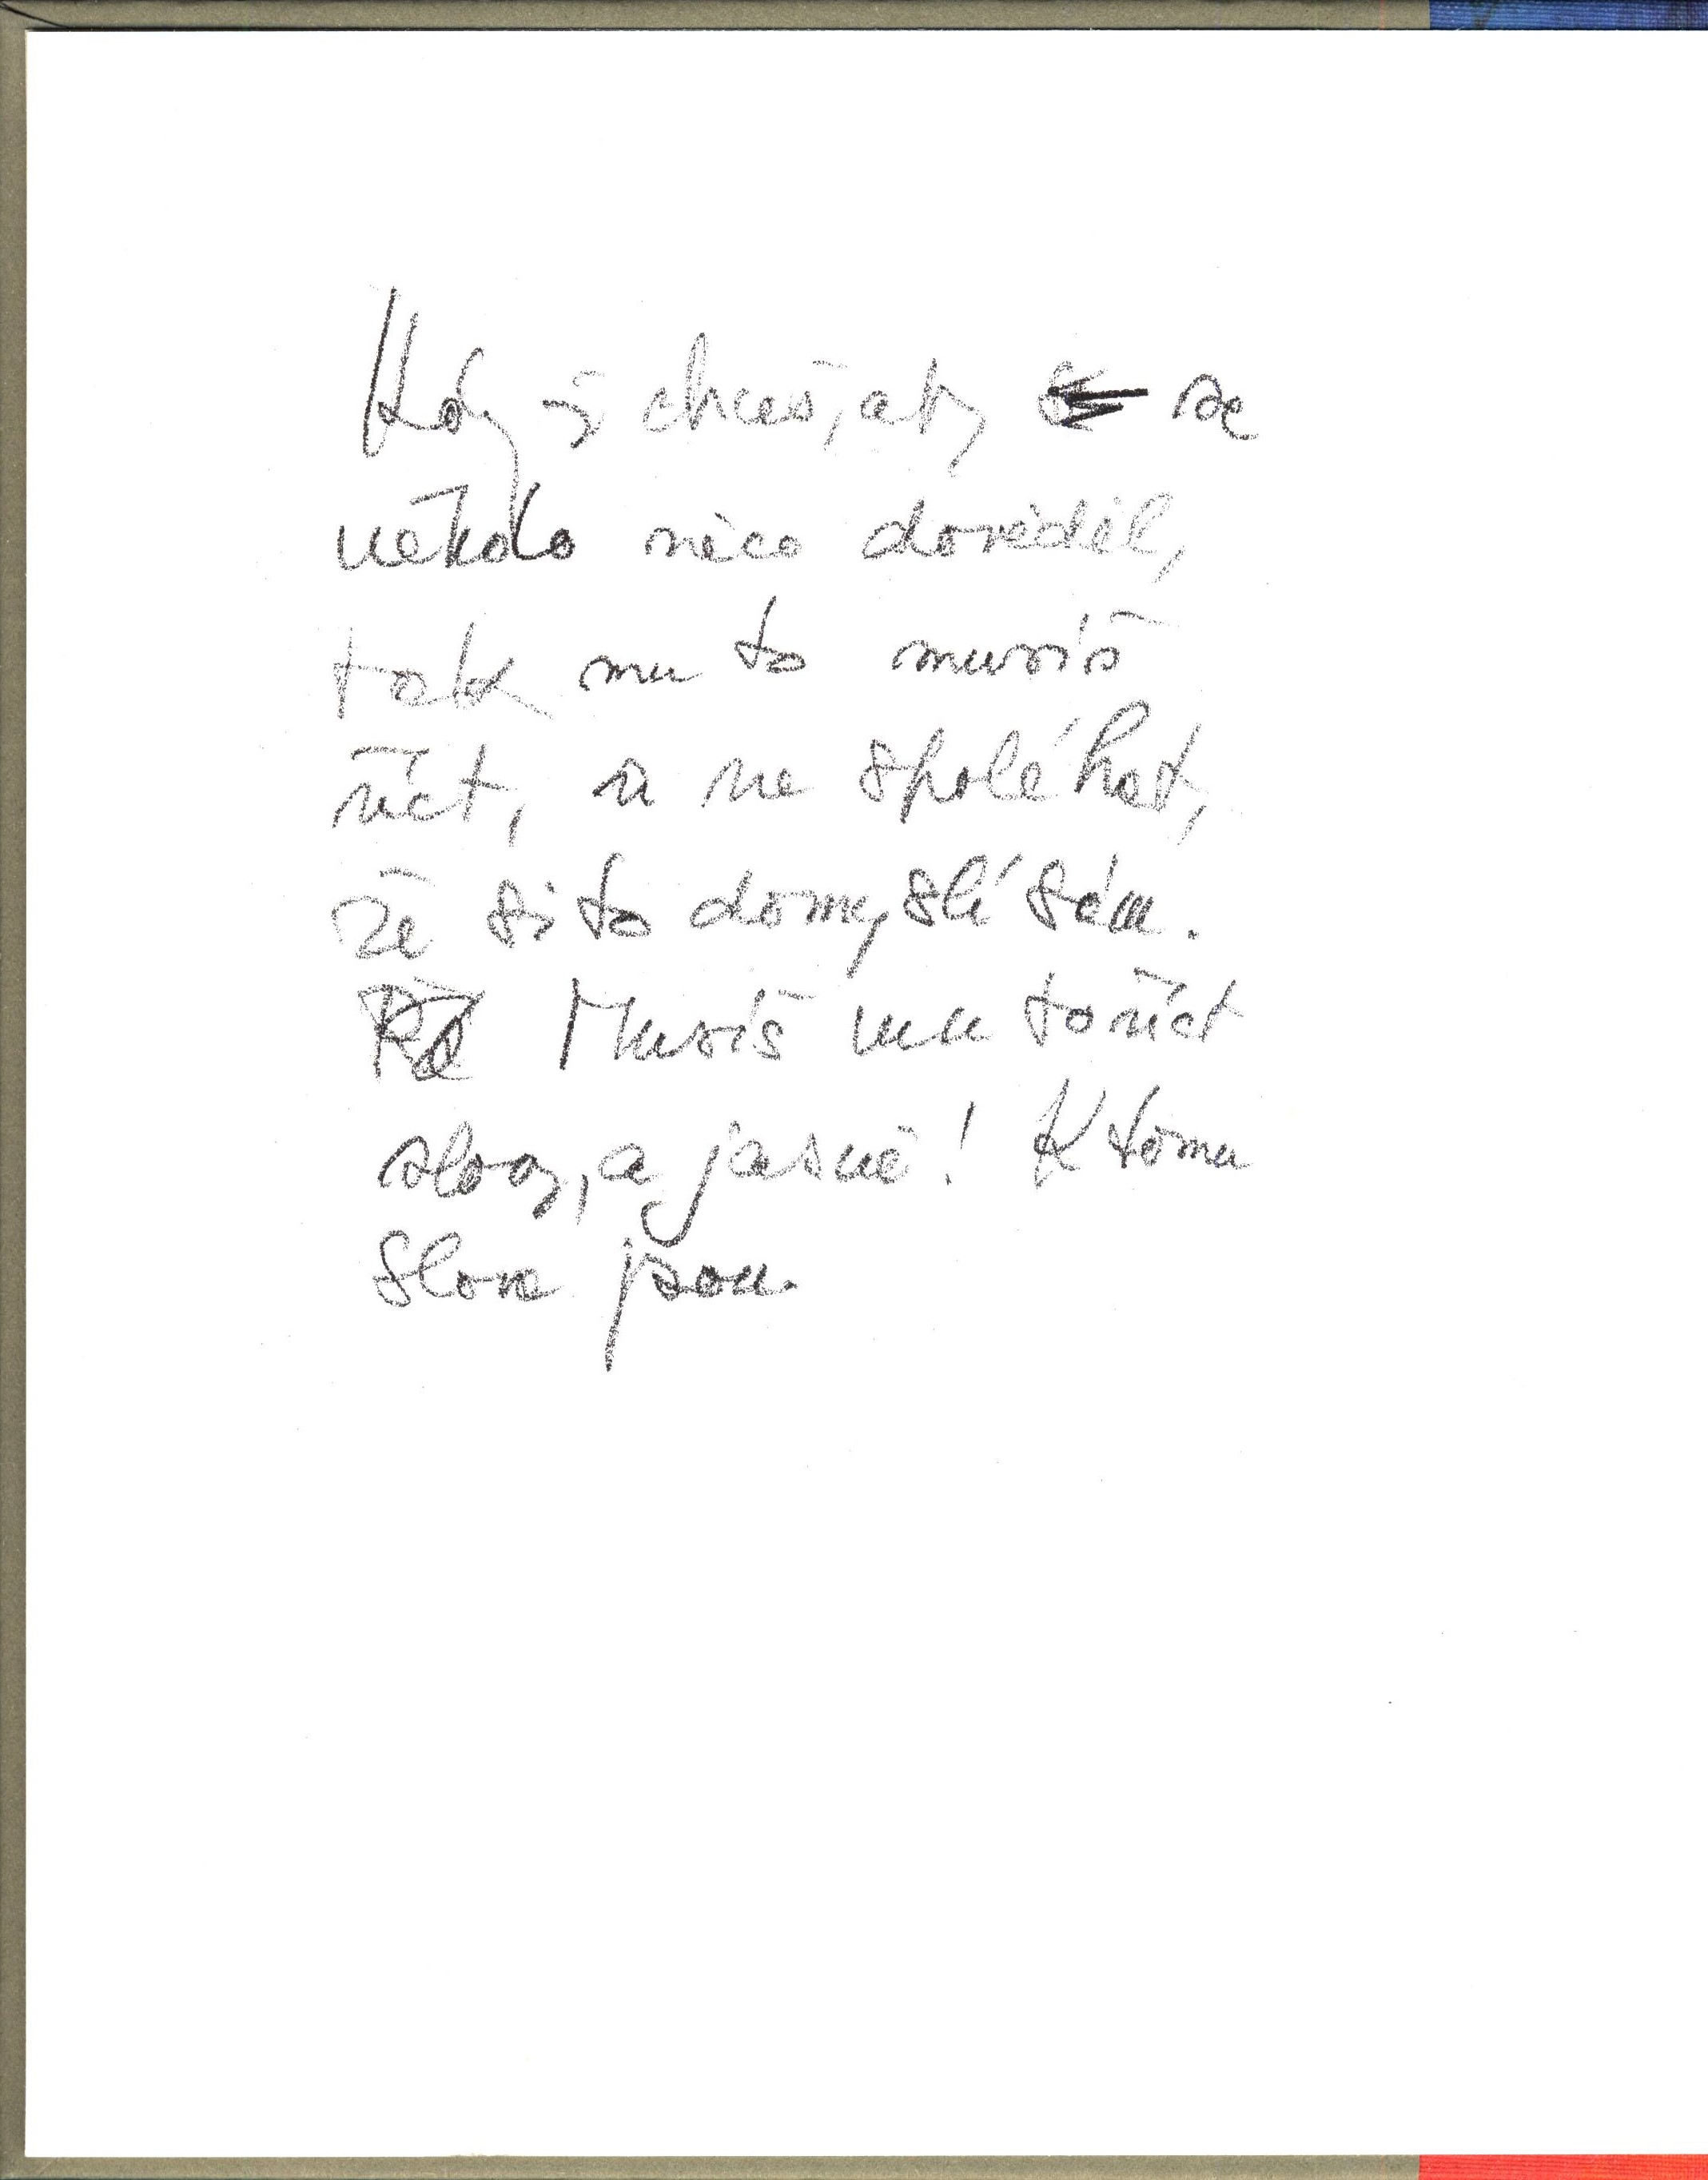 Když chceš, aby se
někdo něco dověděl,
tak mu to musíš
říct, a ne spoléhat,
že si to domyslí sám.
Musíš mu to říct
slovy, a jasně! K tomu
slova jsou.